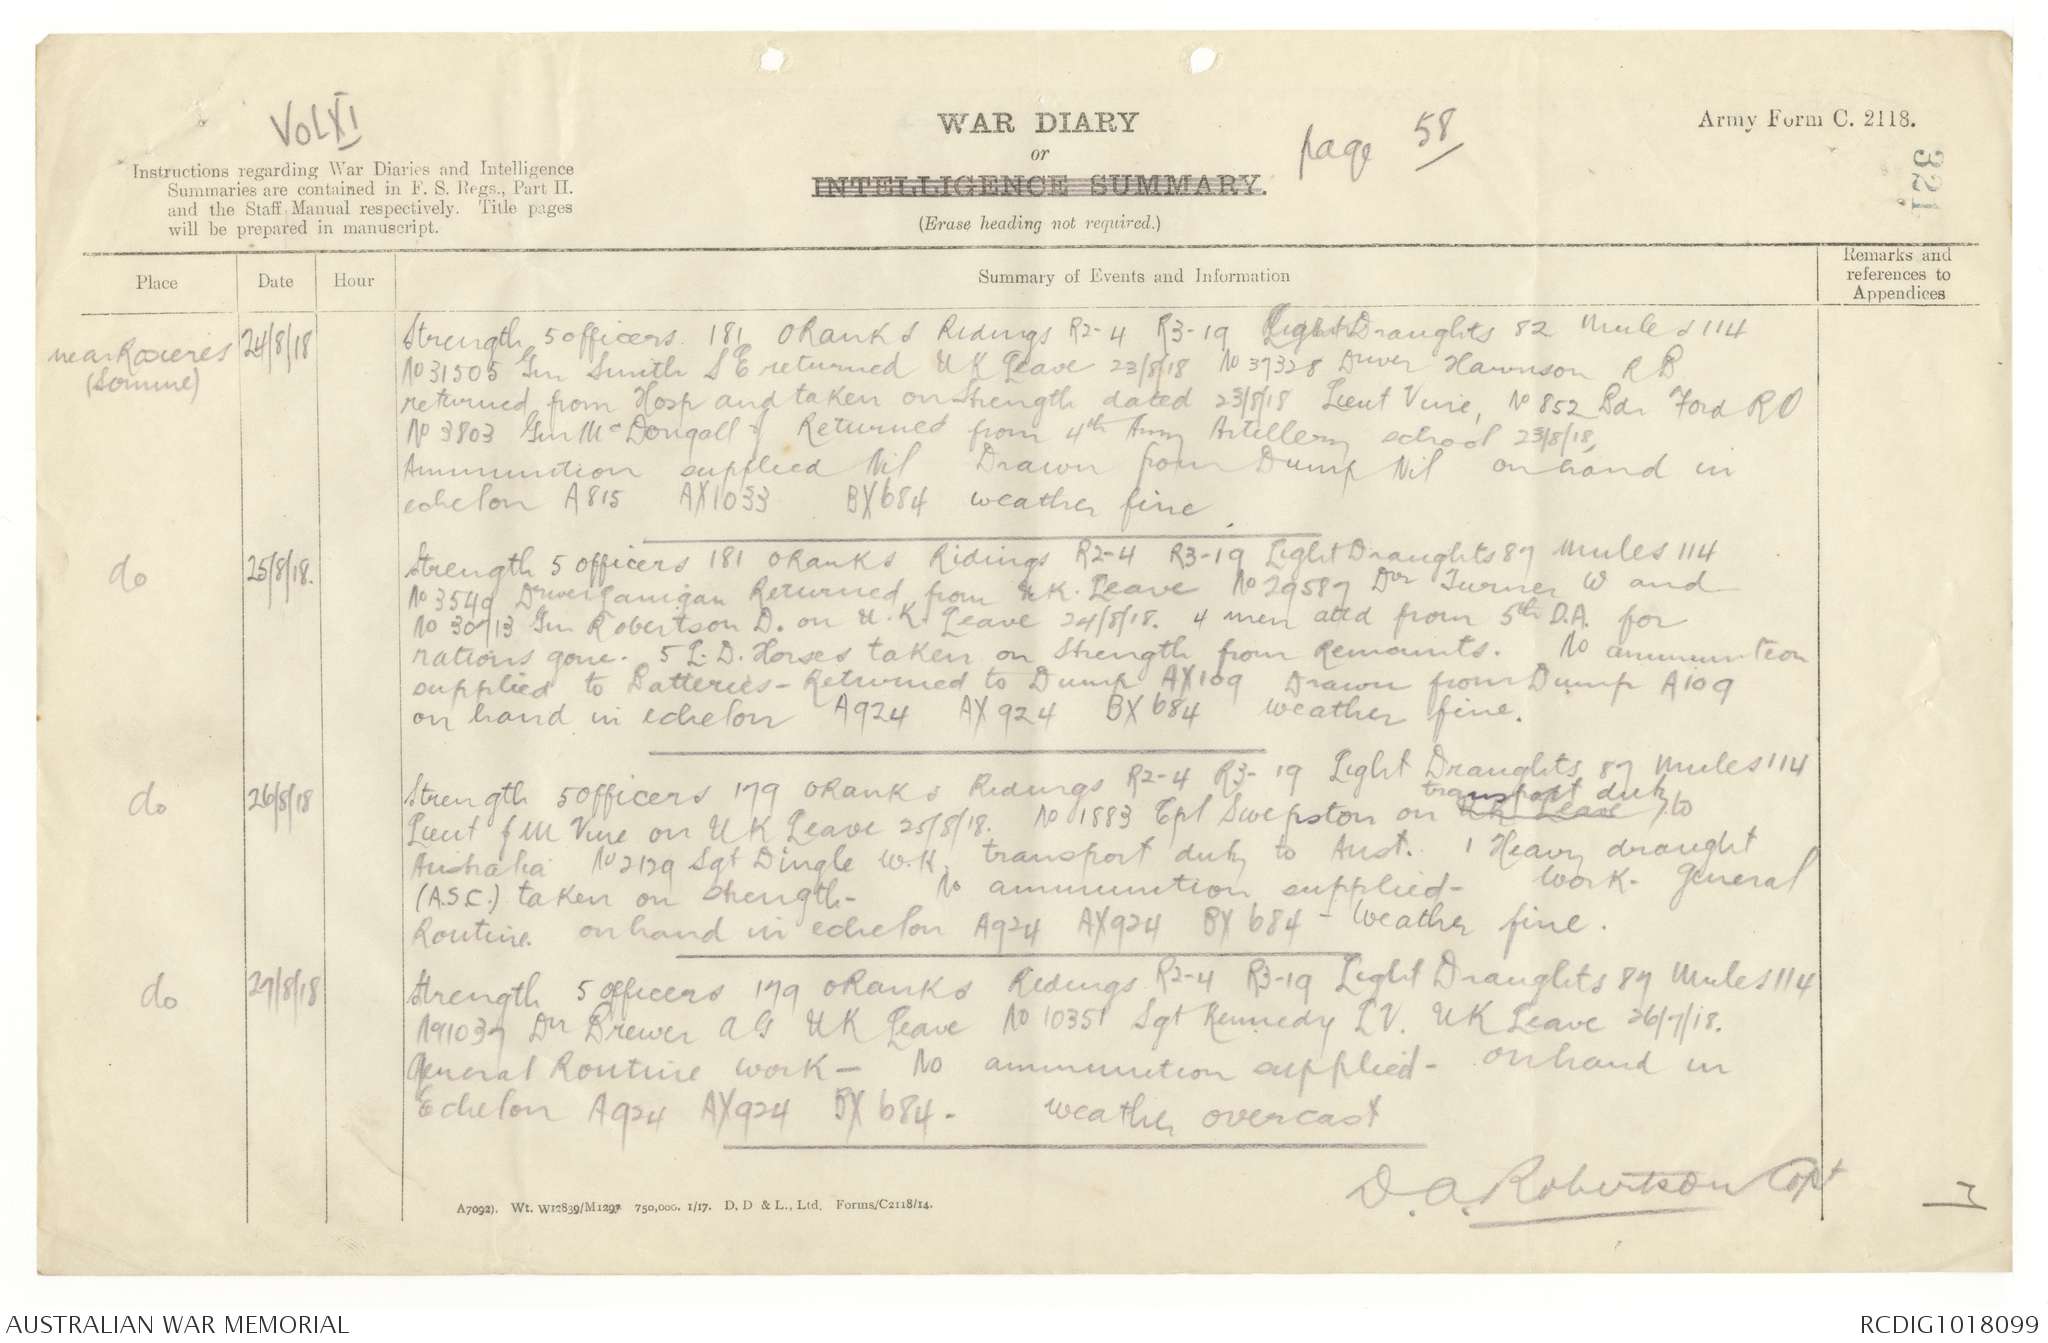 Vol XI
WAR DIARY
or
INTELLIGENCE SUMMARY.
(Erase heading not required.)
page 58
Army Form C. 2118.
321
Instructions regarding War Diaries and Intelligence
Summaries are contained in F. S. Regs., Part II.
and the Staff Manual respectively. Title pages
will be prepared in manuscript.
Place
Date
Hour
Summary of Events and Information
Remarks and
references to
Appendices
near Rosieres
(Somme)
24/8/18
Strength 5 officers 181 ORanks Ridings R2-4 R3-19 Light Draughts 82 Mules 114
No 31505 Gnr Smith S E returned UK Leave 23/8/18 No 37328 Driver Harrison R B
returned from Hosp and taken on Strength dated 23/8/18 Lieut Vine, No 852 Bdr Ford R O
No 3803 Gnr McDougall J Returned from 4th Army Artillery school 23/8/18,
Ammunition supplied Nil Drawn from Dump Nil on hand in
echelon A 815 AX1033 BX684 weather fine
do
25/8/18.
Strength 5 officers 181 ORanks Ridings R2-4 R3-19 Light Draughts 87 Mules 114
No 3549 Driver Lanigan Returned from U.K. Leave No 29587 Dvr Turner W and
No 30713 Gnr Robertson D. on U.K. Leave 24/8/18. 4 men attd from 5th D.A. for
rations gone. 5 L.D. Horses taken on Strength from Remounts. No ammunition
supplied to Batteries - Returned to Dump AX109 Drawn from Dump A109
on hand in echelon A924 AX924 BX684 weather fine.
do
26/8/18
Strength 5 officers 179 ORanks Ridings R2-4 R3-19 Light Draughts 87 Mules 114
transport duty
Lieut J M Vine on UK Leave 25/8/18. No 1883 Cpl Swepston on UK Leave to
Australia No 2129 Sgt Dingle W.K. transport duty to Aust. 1 Heavy draught
(A.S.C.) taken on Strength - No ammunition supplied - Work - General
Routine. on hand in echelon A924 AX924 BX 684 - Weather fine.
do
27/8/18
Strength 5 officers 179 ORanks Ridings R2-4 R3-19 Light Draughts 87 Mules 114
No 1037 Dvr Brewer A G UK Leave No 10351 Sgt Kennedy L V. UK Leave 26/7/18.
General Routine work - No ammunition supplied - on hand in
Echelon A924 AX924 BX 684 - weather overcast
D. A. Robertson Capt
A7092). Wt. W12839/M1297 750,000. 1/17. D. D & L., Ltd. Forms/C2118/14.
AUSTRALIAN WAR MEMORIAL
RCDIG1018099